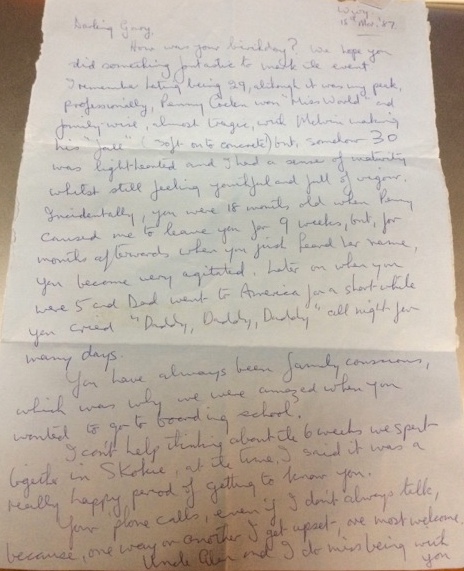 Darling Gary,
How was your birthday? We hope you
did something fantastic to mark the event
I remember hating being 29, although it was my peak,
professionally, Penny won "Miss World" and
family wise, almost tragic, with Melvin making
his fall (soft onto concrete) but, somehow 30
was lighthearted and I had a sense of maturity
whilst still feeling youthful and full of vigour.
Incidentally, you were 18 months old when Penny
caused me to leave you for 9 weeks, but, for
months afterwards when you just heard her name,
you become very agitated. Later on when you
were 5 and Dad went to America for a short while
you cried "Daddy, Daddy, Daddy" all night for
many days.
You have always been family conscious,
which was why we were amazed when you
wanted to go to boarding school.
I can't help thinking about the 6 weeks we spent
together in Skokie, at the time I said it was a
really happy period of getting to know you.
Your phone calls, even if I don't always talk,
because, one way or another, I get upset, are most welcome.
Uncle Alan and I do miss being with
you